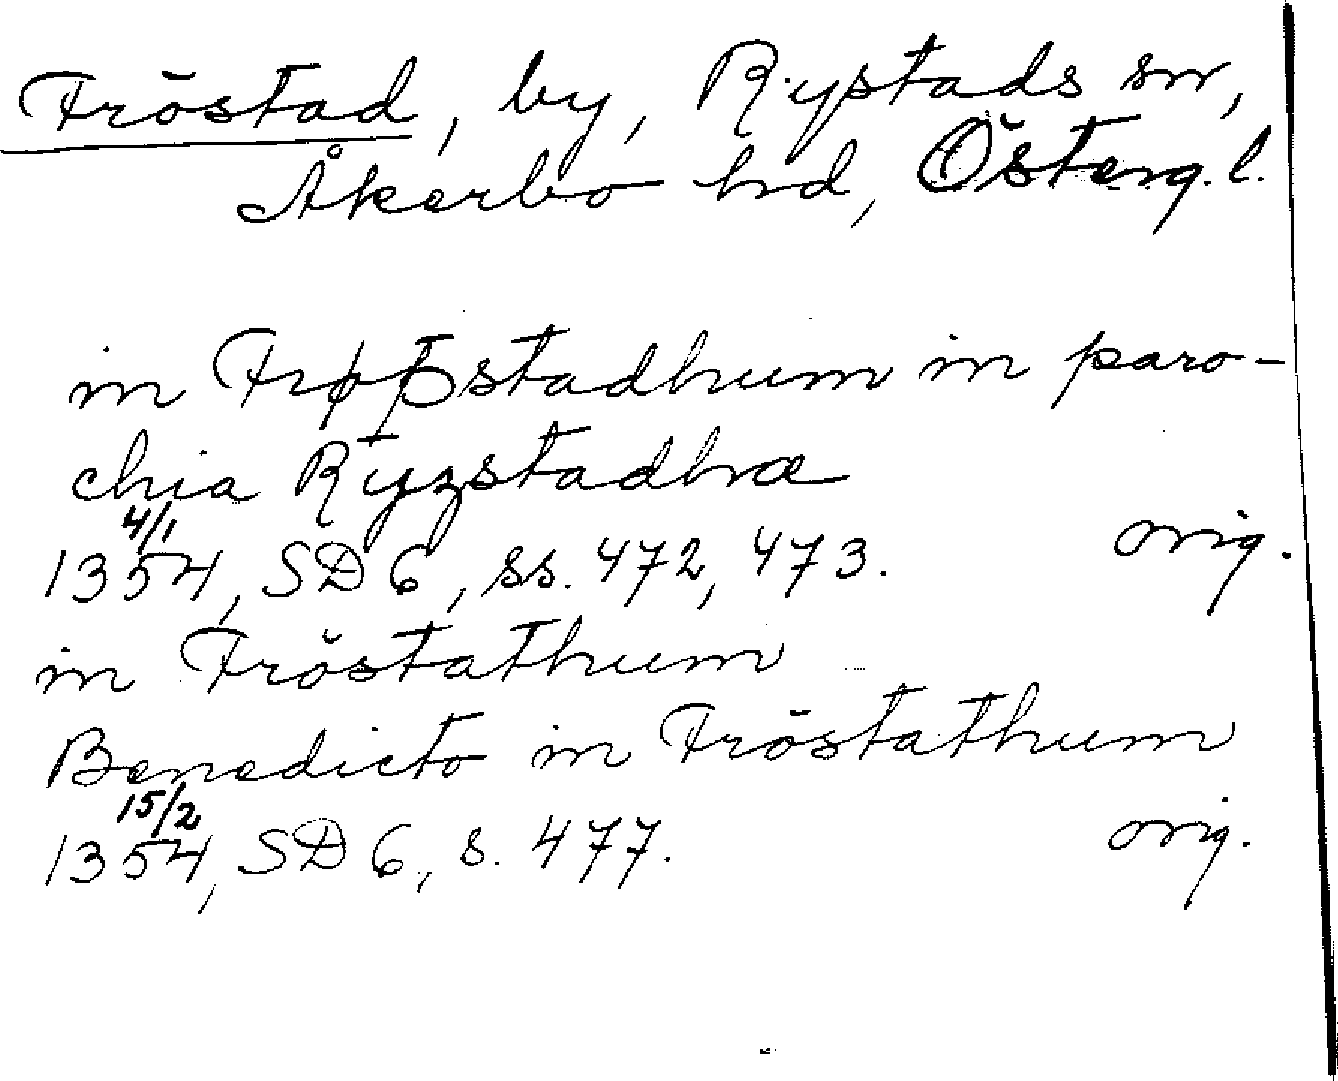 Fröstad, by, Rystads sn,
Åkerbo hd, Österg.l.
in Frøþstadhum in paro-
chia Ryzstadhæ
4/1
1354, SD 6, ss. 472, 473. orig.
in Fröstathum
Benedicto in Fröstathum
15/2
1354, SD 6, s. 477. orig.